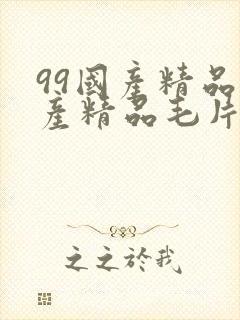 99國產精品
產精品毛片
之之於我